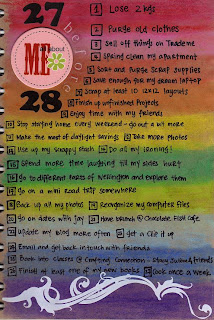 27
before
28
all about
ME
1 Lose 2kgs
2 Purge old clothes
3 Sell off things on Trademe
4 Spring clean my apartment
5 Sort and Purge Scrap Supplies
6 Save enough for my dream laptop
7 Scrap at least 10 12x12 layouts
8 Finish up unfinished Projects
9 Enjoy time with my friends
10 Stop starting home every weekend - go out a bit more
11 Make the most of daylight savings 12 Take more photos
13 Use up my snappy stash 14 Do all my ironing!
15 Spend more time laughing till my sides hurt
16 Go to different parts of Wellington and explore them
17 Go on a mini Road trip somewhere
18 Back up all my photos 19 Reorganize my computer files
20 Go on dates with Jay 21 Have brunch @ Chocolate Fish cafe
22 Update my blog more often 23 Get a GHD it up
24 Email and get back in touch with friends
25 Book into classes @ Crafting Connection - Share Sunday & friends
26 Finish at least one of my new books 27 Cook once a week